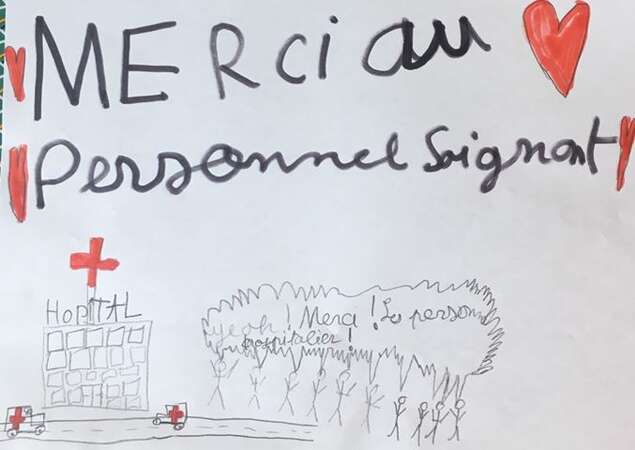 MERci au
Personnel Soignant
HOPITAL
yeah! Merci! Le person
hospitalier!